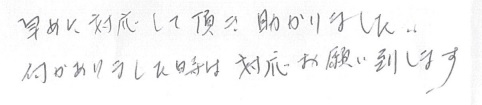 早めに対応して頂き助かりました。
何かありました時は対応お願い致します